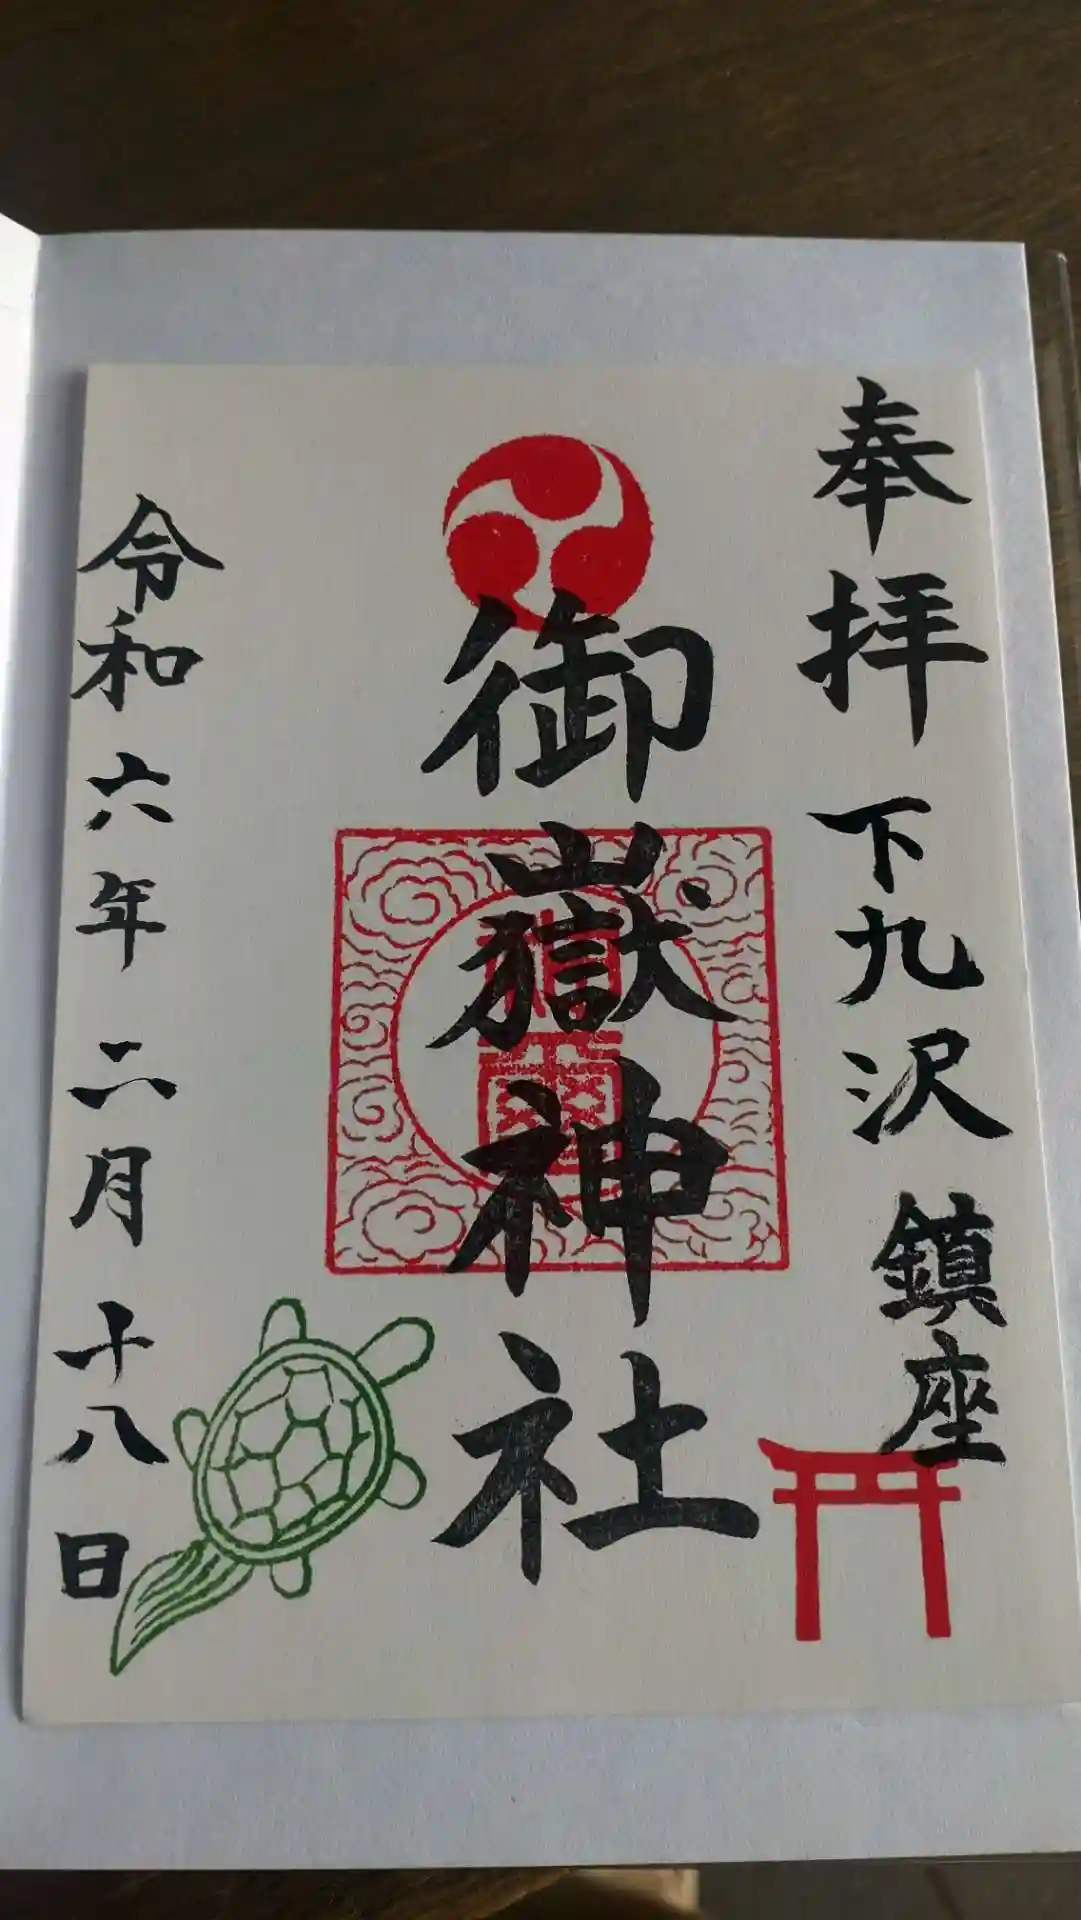 奉拝
下九沢鎮座
御嶽神社
令和六年二月十八日